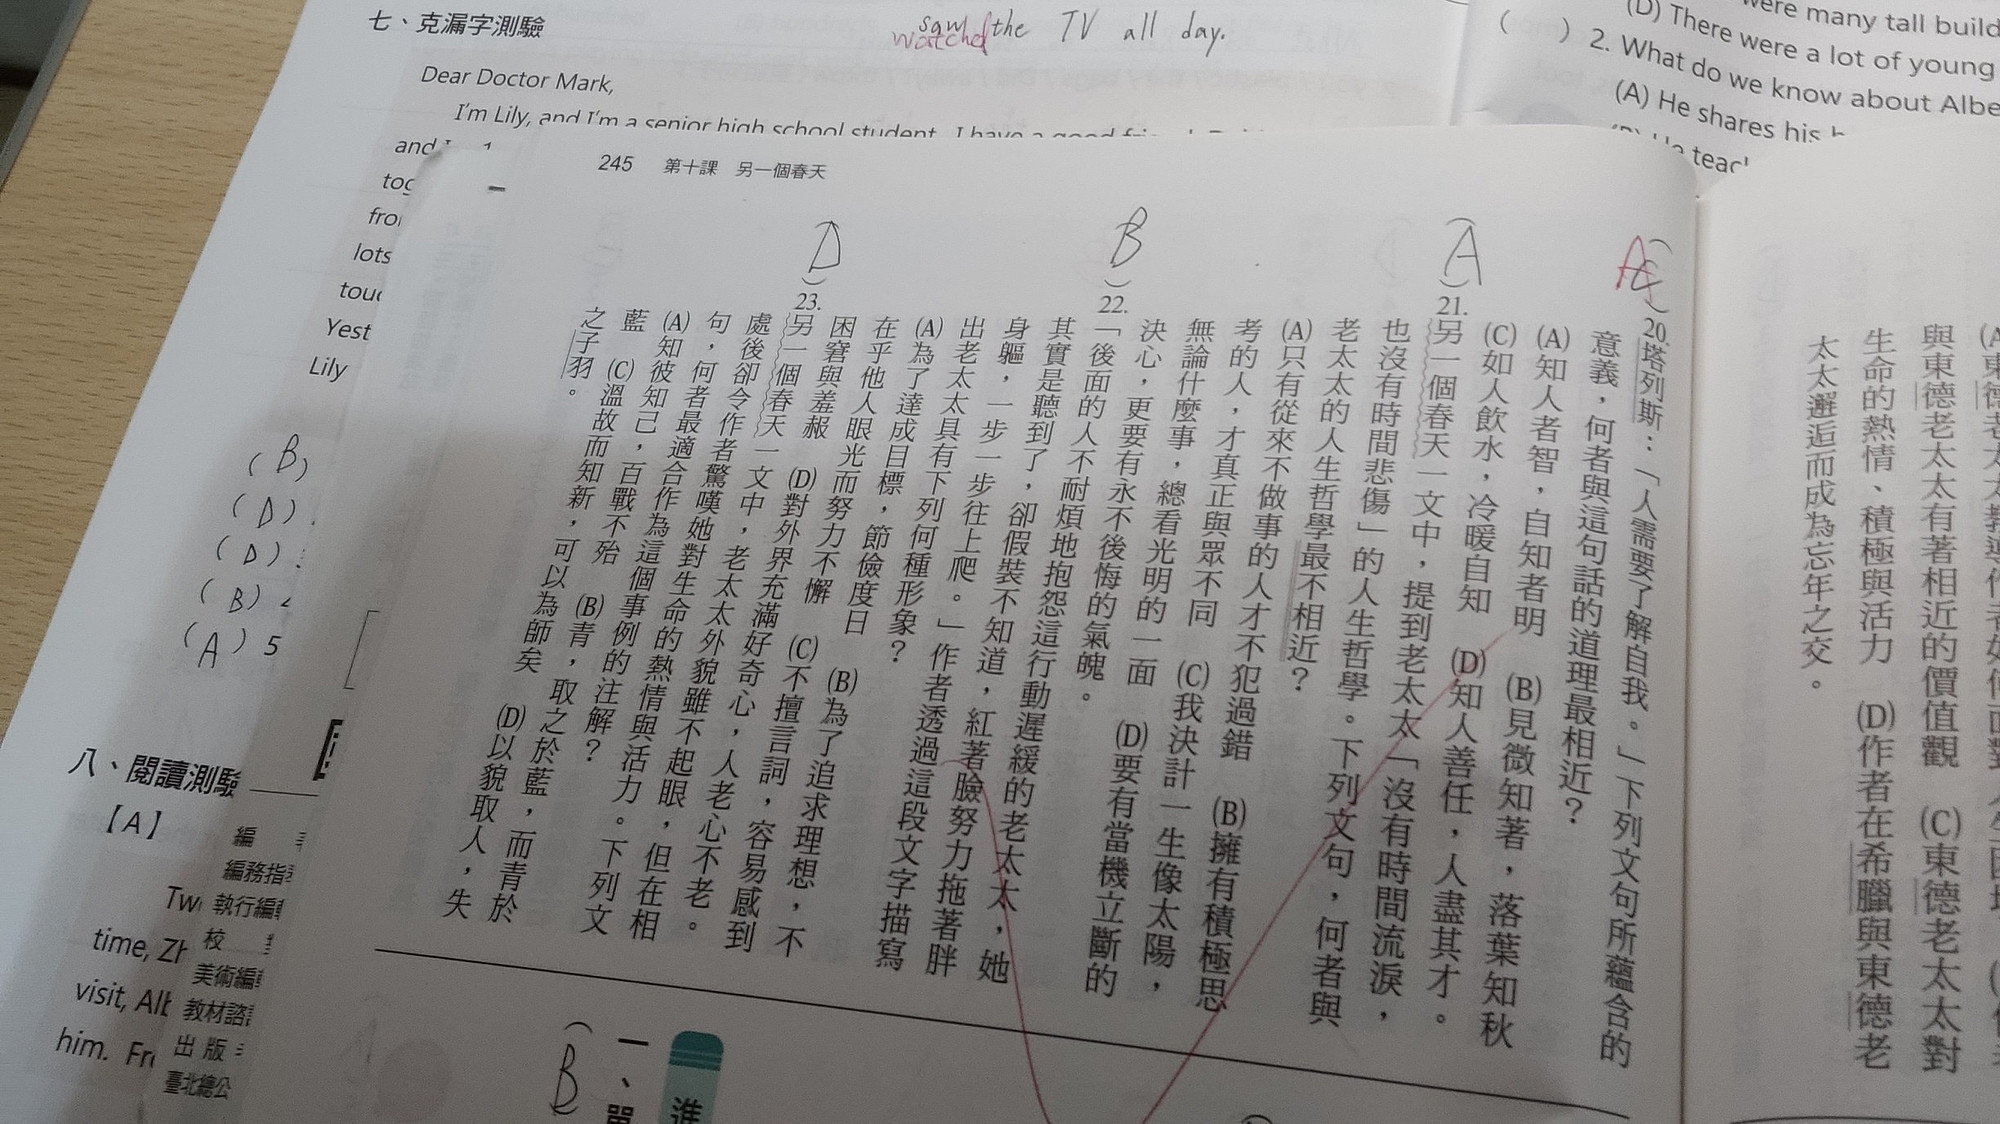 七、克漏字測驗
saw the TV all day.
watched
Dear Doctor Mark,
I'm Lily, and I'm a senior high school student. I have a good
and
tog
from
lots
touc
Yest
Lily
(B)
(D)
(D)
(B)
(A) 5
八、閱讀測驗
【A】
Tw
time, Zh
visit, Alb
him. Fr
編
編務指
執行編
校
美術編
教材諮
出版
臺北總公
(D) There were a lot of young
( ) 2. What do we know about Albe
(A) He shares his
He teac
were many tall build
245 第十課 另一個春天
與東德老太太有著相近的價值觀 (C)東德老太太對
生命的熱情、積極與活力 (D)作者在希臘與東德老
太太邂逅而成為忘年之交。
(A) 20. 塔列斯:「人需要了解自我。」下列文句所蘊含的
意義,何者與這句話的道理最相近?
(A)知人者智,自知者明 (B)見微知著,落葉知秋
(C)如人飲水,冷暖自知 (D)知人善任,人盡其才。
(A) 21. 另一個春天一文中,提到老太太「沒有時間流淚,
也沒有時間悲傷」的人生哲學。下列文句,何者與
老太太的人生哲學最不相近?
(A)只有從來不做事的人才不犯過錯 (B)擁有積極思
考的人,才真正與眾不同 (C)我決計一生像太陽,
無論什麼事,總看光明的一面 (D)要有當機立斷的
決心,更要有永不後悔的氣魄。
(B) 22. 「後面的人不耐煩地抱怨這行動遲緩的老太太,她
其實是聽到了,卻假裝不知道,紅著臉努力拖著胖
身軀,一步一步往上爬。」作者透過這段文字描寫
出老太太具有下列何種形象?
(A)為了達成目標,節儉度日 (B)為了追求理想,不
在乎他人眼光而努力不懈 (C)不擅言詞,容易感到
困窘與羞赧 (D)對外界充滿好奇心,人老心不老。
(D) 23. 另一個春天一文中,老太太外貌雖不起眼,但在相
處後卻令作者驚嘆她對生命的熱情與活力。下列文
句,何者最適合作為這個事例的注解?
(A)知彼知己,百戰不殆 (B)青,取之於藍,而青於
藍 (C)溫故而知新,可以為師矣 (D)以貌取人,失
之子羽。
(B
一、單
進